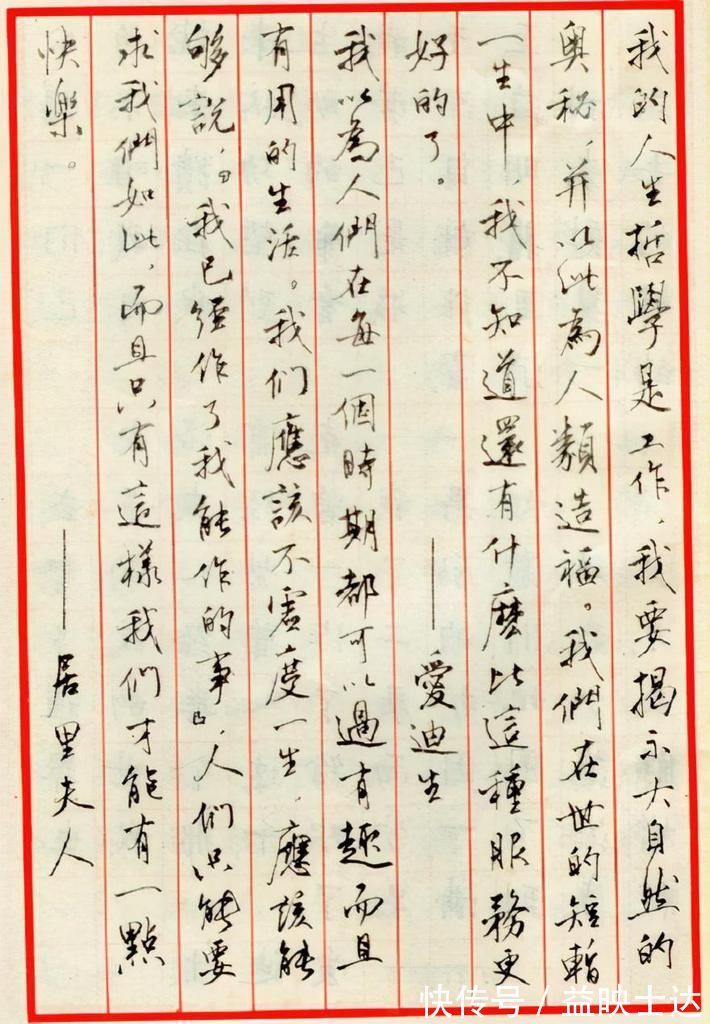 我的人生哲學是工作，我要揭示大自然的
奥秘，并以此為人類造福。我們在世的短暫
一生中，我不知道還有什麽比這種服務更
好的了。
——愛迪生
我以為人們在每一個時期都可以過有趣而且
有用的生活。我们應該不虛度一生，應該能
够說，『我已經作了我能作的事』，人们只能要
求我們如此，而且只有這樣我们才能有一點
快樂。
——居里夫人
快传号/益映士达